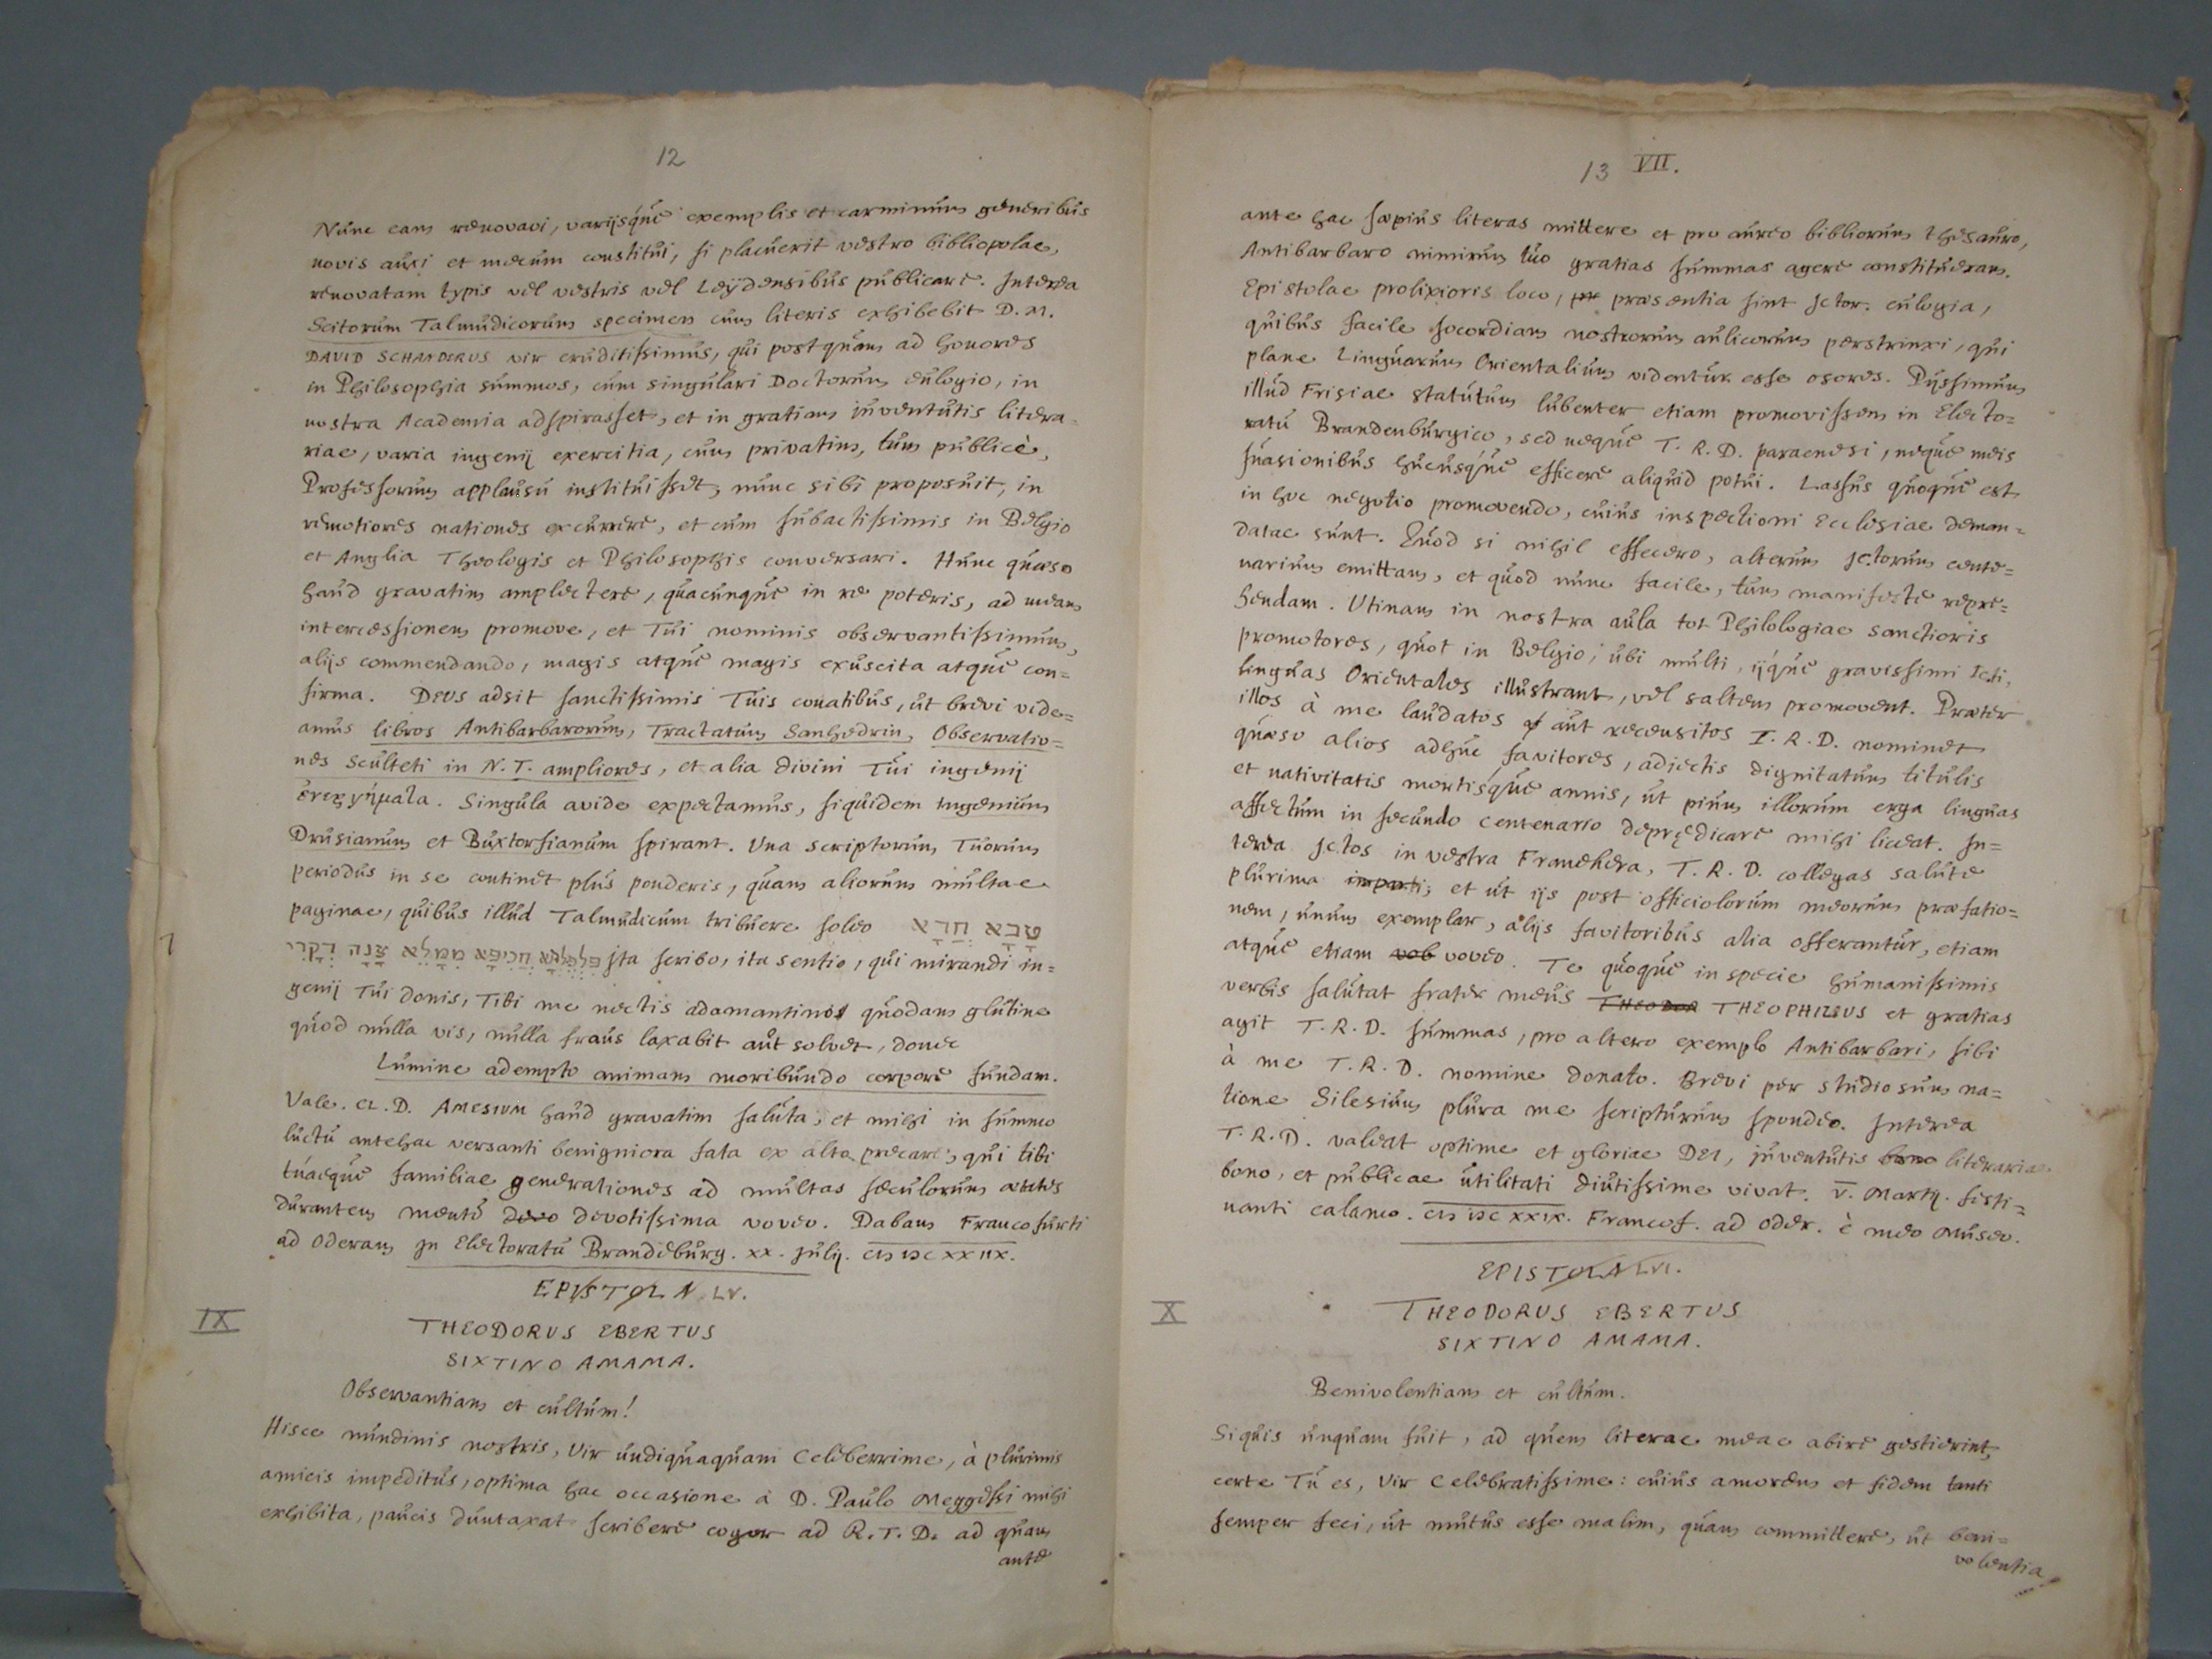 12
Nunc eam renovavi, varijsque exemplis et carminum generibus
novis auxi et mecum constitui, si placuerit vestro bibliopolae,
renovatam typis vel vestris vel Leydensibus publicare. Interea
Scitorum Talmudicorum specimen cum literis exhibebit D. M.
DAVID SCHARDERUS vir eruditissimus, qui postquam ad honores
in Philosophia summos, cum singulari Doctorum eulogio, in
nostra Academia adspirasset, et in gratiam juventutis litera-
riae, varia ingenij exercitia, cum privatim, tum publicè,
Professorum applausu instituisset, nunc sibi proposuit, in
remotiores nationes excurrere, et cum subactissimis in Belgio
et Anglia Theologis et Philosophis conversari. Hunc quæso
haud gravatim amplectere, quacunque in re poteris, ad meam
intercessionem promove, et Tui nominis observantissimum,
alijs commendando, magis atque magis exuscita atque con=
firma. DEUS adsit sanctissimis Tuis conatibus, ut brevi vide=
amus libros Antibarbarorum, Tractatum Sanhedrin, Observatio=
nes Sculteti in N. T. ampliores, et alia divini Tui ingenij
Singula avide expectamus, siquidem ingenium
Drusianum et Buxtorfianum spirant. Una scriptorum Tuorum
periodus in se continet plus ponderis, quam aliorum multae
paginae, quibus illud Talmudicum tribuere soleo טָבָא חֲדָא
פִּלְפַּלְתָּא חֲרִיפָא מִמְּלֵא צַנָּה דְקָרֵי Ita scribo, ita sentio, qui mirandi in=
genij Tui donis, Tibi me nectis adamantino quodam glutine
quod nulla vis, nulla fraus laxabit aut solvet, donec
Lumine adempto animam moribundo corpore fundam.
Vale. Cl. D. AMESIUM haud gravatim saluta, et mihi in summo
luctu antehac versanti benigniora fata ex alto precare, qui tibi
tuaeque familiae generationes ad multas seculorum aetates
durantem mente devo devotissima voveo. Dabam Francofurti
ad Oderam in Electoratu Brandeburg. xx. Julij. CIↃ IↃC XXIIX.
EPISTOLA LV.
IX
THEODORUS EBERTUS
SIXTINO AMAMA.
Observantiam et cultum!
Hisce nundinis nostris, Vir undiquaquam Celeberrime, à plurimis
amicis impeditus, optima hac occasione à D. Paulo Meggessi mihi
exhibita, paucis duntaxat scribere cogor ad R. T. D. ad quam
ante
13 VII.
ante hac sæpius literas mittere et pro aureo bibliorum thesauro,
Antibarbaro nimirum tuo gratias summas agere constitueram.
Epistolae prolixioris loco, præsentia sint Jctor. eulogia,
quibus facile socordiam nostrorum aulicorum perstrinxi, qui
plane Linguarum Orientalium videntur esse osores. Pijssimum
illud Frisiae statutum lubenter etiam promovissem in Electo=
ratu Brandenburgico, sed neque T. R. D. paraenesi, neque meis
suasionibus hucusque efficere aliquid potui. Lassus quoque est
in hoc negotio promovendo, cuius inspectioni Ecclesiae deman=
datae sunt. Quod si nihil effecero, alterum Jctorum cente=
narium emittam, et quod nunc facile, tum manifeste repre=
hendam. Utinam in nostra aula tot Philologiae sanctioris
promotores, quot in Belgio, ubi multi, ijque gravissimi Jcti,
linguas Orientales illustrant, vel saltem promovent. Præter
illos à me laudatos aut recensitos T. R. D. nominet
quæso alios adhuc favitores, adjectis dignitatum titulis
et nativitatis mortisque annis, ut pium illorum erga linguas
affectum in secundo centenario deprędicare mihi liceat. In=
terea Jctos in vestra Franekera, T. R. D. collegas salute
plurima imparti; et ut ijs post officiolorum meorum præfatio=
nem, unum exemplar, alijs favitoribus alia offerantur, etiam
atque etiam vob voveo. Te quoque in specie humanissimis
verbis salutat frater meus THEODOR THEOPHILUS et gratias
agit T. R. D. summas, pro altero exemplo Antibarbari, sibi
à me T. R. D. nomine donato. Brevi per studiosum na=
tione Silesium plura me scripturum spondeo. Interea
T. R. D. valeat optime et gloriae DEI, juventutis bono literariae
bono, et publicae utilitati diutissime vivat. V. Martij. festi=
nanti calamo. CIↃ IↃC XXIX. Francof. ad Oder. è meo Museo.
EPISTOLA LVI.
X
THEODORUS EBERTUS
SIXTINO AMAMA.
Benivolentiam et cultum.
Siquis unquam fuit, ad quem literae meae abire gestierint,
certe Tu es, Vir Celebratissime: cuius amorem et fidem tanti
semper feci, ut mutus esse malim, quam committere, ut beni=
volentia